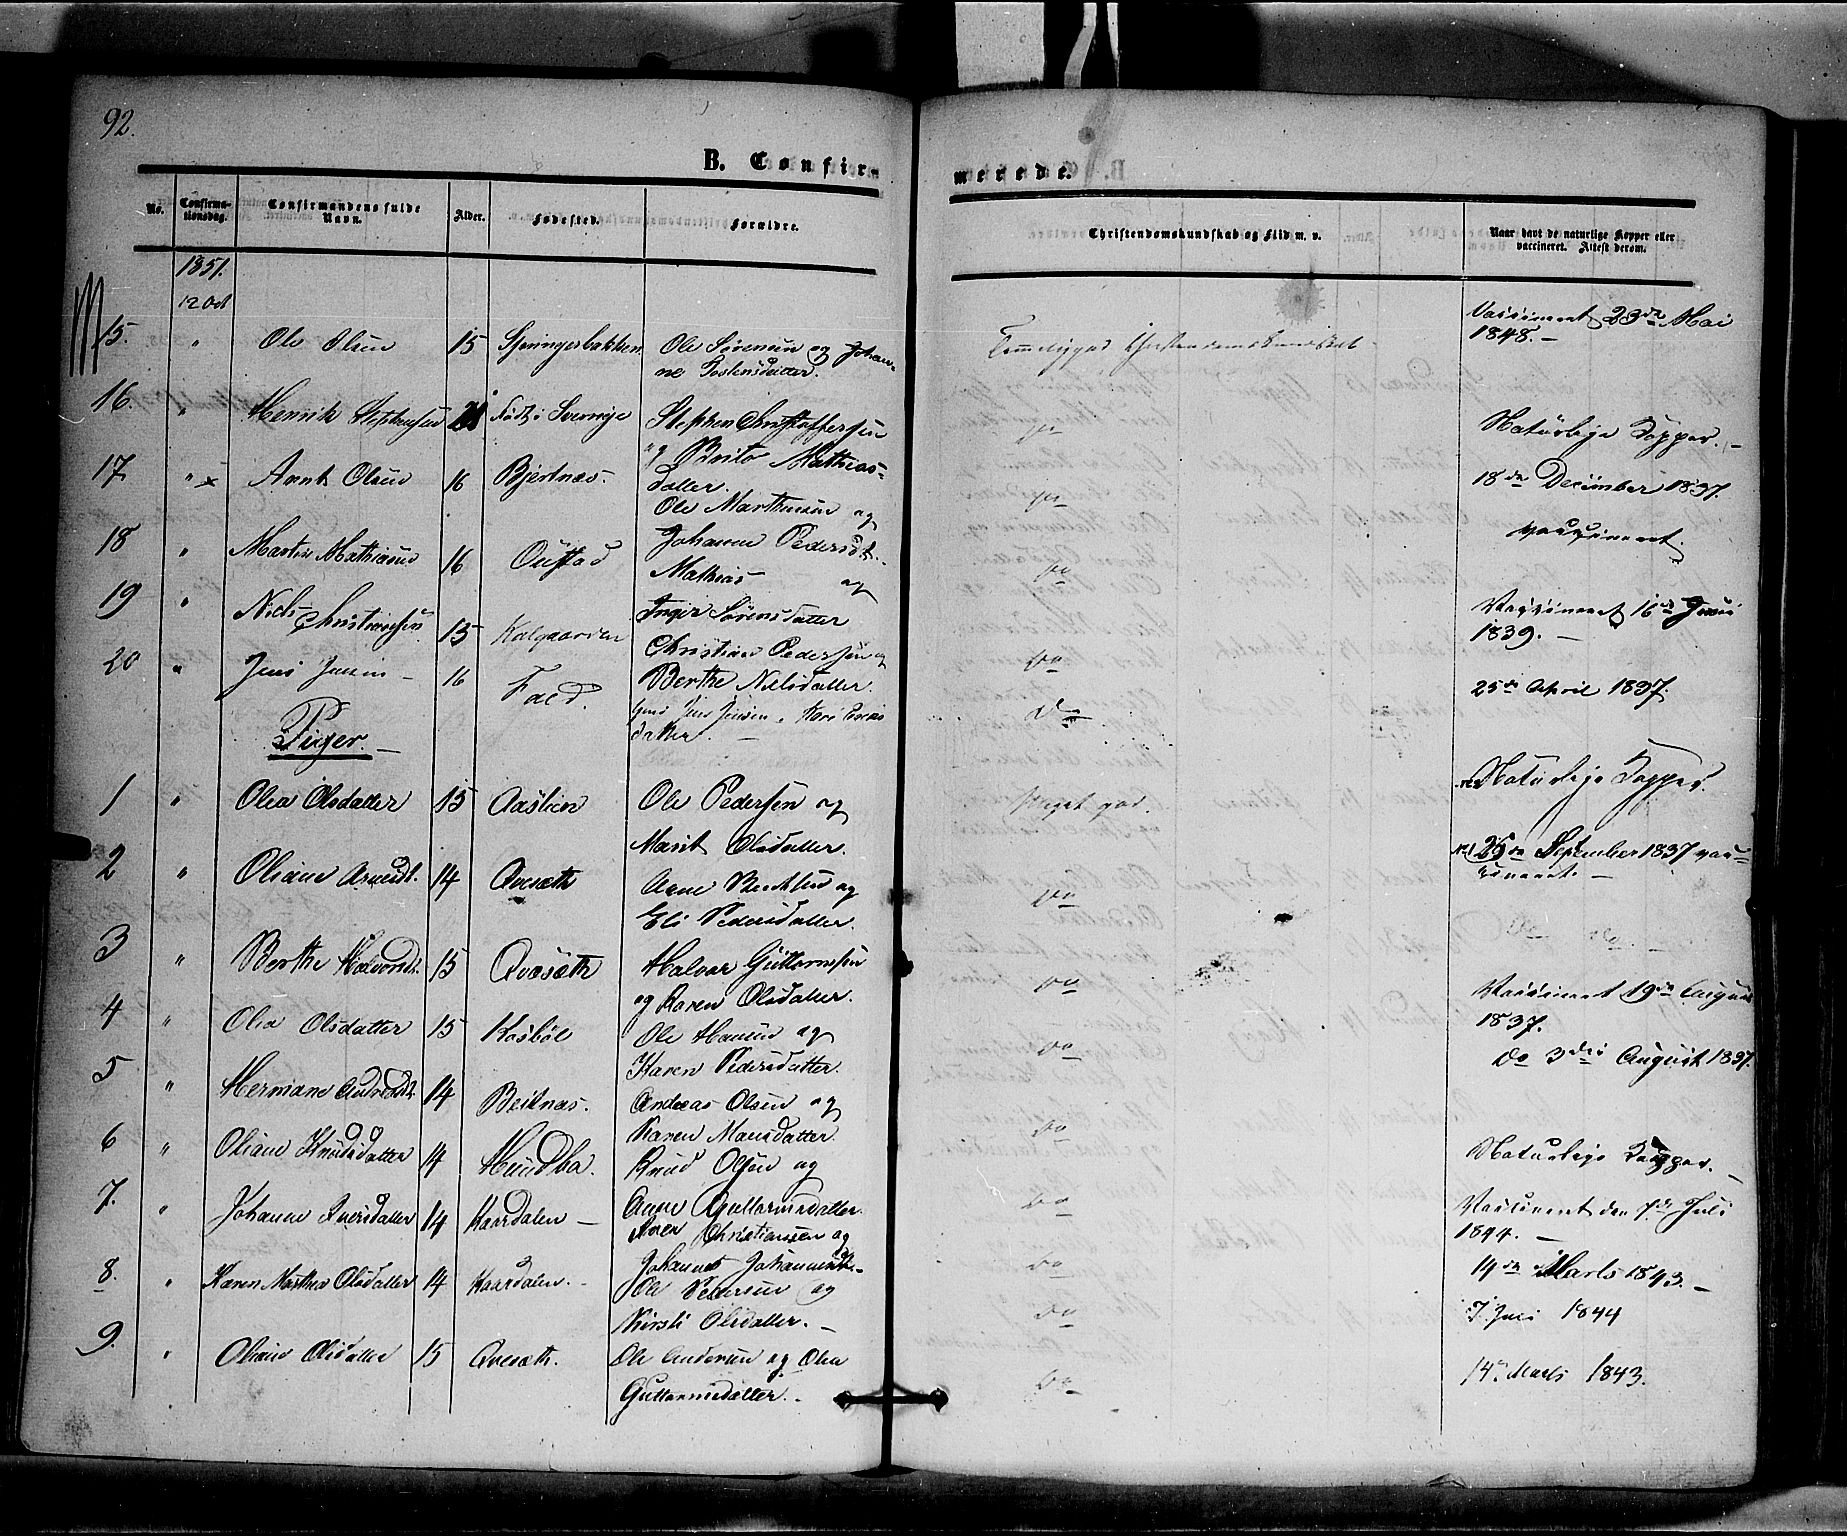 92.
B. Confirmerede.
No. Confirmationsdag. Confirmandens fulde Navn. Alder. Fødested. Forældre. Christendomskundskab og Flid m. v. Naar havt de naturlige Kopper eller vaccineret. Attest derom.
1851.
12 Oct
15. " Ole Olsen 15 Ole Sørensen og Johanne Vaccineret 23de Mai 1848. -
16. " Henrik Stephensen Født i Sverrige Stephen Christoffersen og Brita Mathiasdatter. do Naturlige Kopper. -
17. " x Arnt Olsen 16 Bjertnæs. Ole Marthinsen og Johanne Pedersdt. do 18de December 1837 vaccineret.
18 " Martin Mathiasen 16 Oustad Mathias og Inger Sørensdatter do
19 " Niels Christiansen 15 Christian Pedersen og Berthe Nielsdatter. do Vaccineret 16de Juni 1839. -
20 " Jens Jensen - 16 Jens Jensen. Kari datter. - Do 25de April 1837.
Piger -
1 " Olea Olsdatter 15 Aaslien Ole Pedersen og Marit Olsdatter. Meget god. Naturlige Kopper.
2 " Oliane Arnesdt. 14 Qvesæth Arne og Eli Pedersdatter. do 25de September 1837 vaccineret. -
3 " Berthe Halvorsdt. 15 Qvesæth Halvor Guttormsen og Karen Olsdatter. do Do Do. -
4 " Olea Olsdatter 15 Kosbøl Ole Hansen og Karen Pedersdatter. do Vaccineret 19de August 1837.
5 " Hermane Andreasdt. 14 Beiknæs. Andreas Olsen og Karen Mansdatter. do Do 3die August 1837.
6 " Oliane Knudsdatter 14 Mundba. Knud Olsen og Anne Guttormsdatter. do Naturlige Kopper. -
7. " Johanne Iversdatter 14 Kaardalen - Iver Christiansen og Johanne Johannesdt. - do Vaccineret den 7de Juli 1844. -
8. " Karen Marthea Olsdatter 14 Kaardalen. - Ole Pedersen og Kirsti Olsdatter. - do 14de Marts 1843. -
7. Juli 1844
9. " Oliane Olsdatter 15 Qvesæth. Ole Andersen og Olea Guttormsdatter. - do 14de Marts 1843.